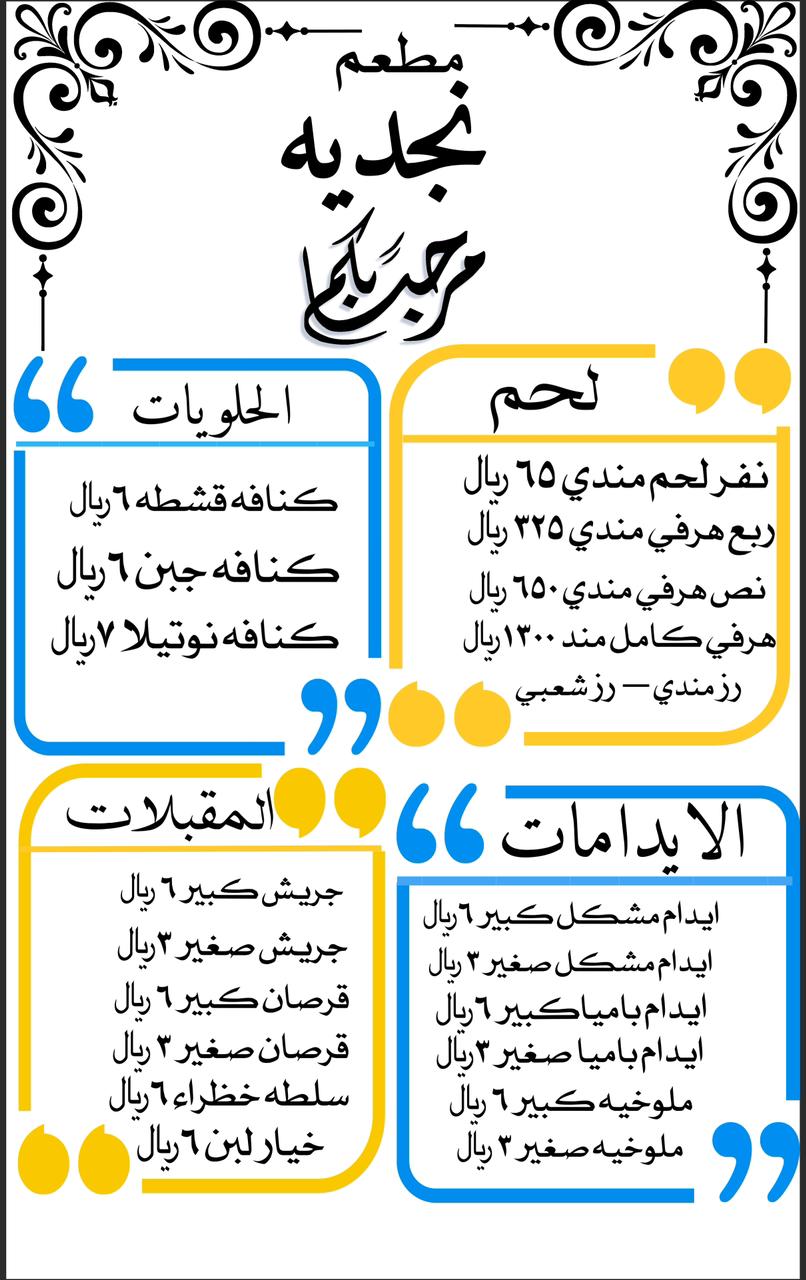 مطعم
نجديه
مرحباً بكم
لحم
نفر لحم مندي ٦٥ ريال
ربع هرفي مندي ٣٢٥ ريال
نص هرفي مندي ٦٥٠ ريال
هرفي كامل مند ١٣٠٠ ريال
رز مندي — رز شعبي
الحلويات
كنافه قشطه ٦ ريال
كنافه جبن ٦ ريال
كنافه نوتيلا ٧ ريال
الايدامات
ايدام مشكل كبير ٦ ريال
ايدام مشكل صغير ٣ ريال
ايدام باميا كبير ٦ ريال
ايدام باميا صغير ٣ ريال
ملوخيه كبير ٦ ريال
ملوخيه صغير ٣ ريال
المقبلات
جريش كبير ٦ ريال
جريش صغير ٣ ريال
قرصان كبير ٦ ريال
قرصان صغير ٣ ريال
سلطه خظراء ٦ ريال
خيار لبن ٦ ريال